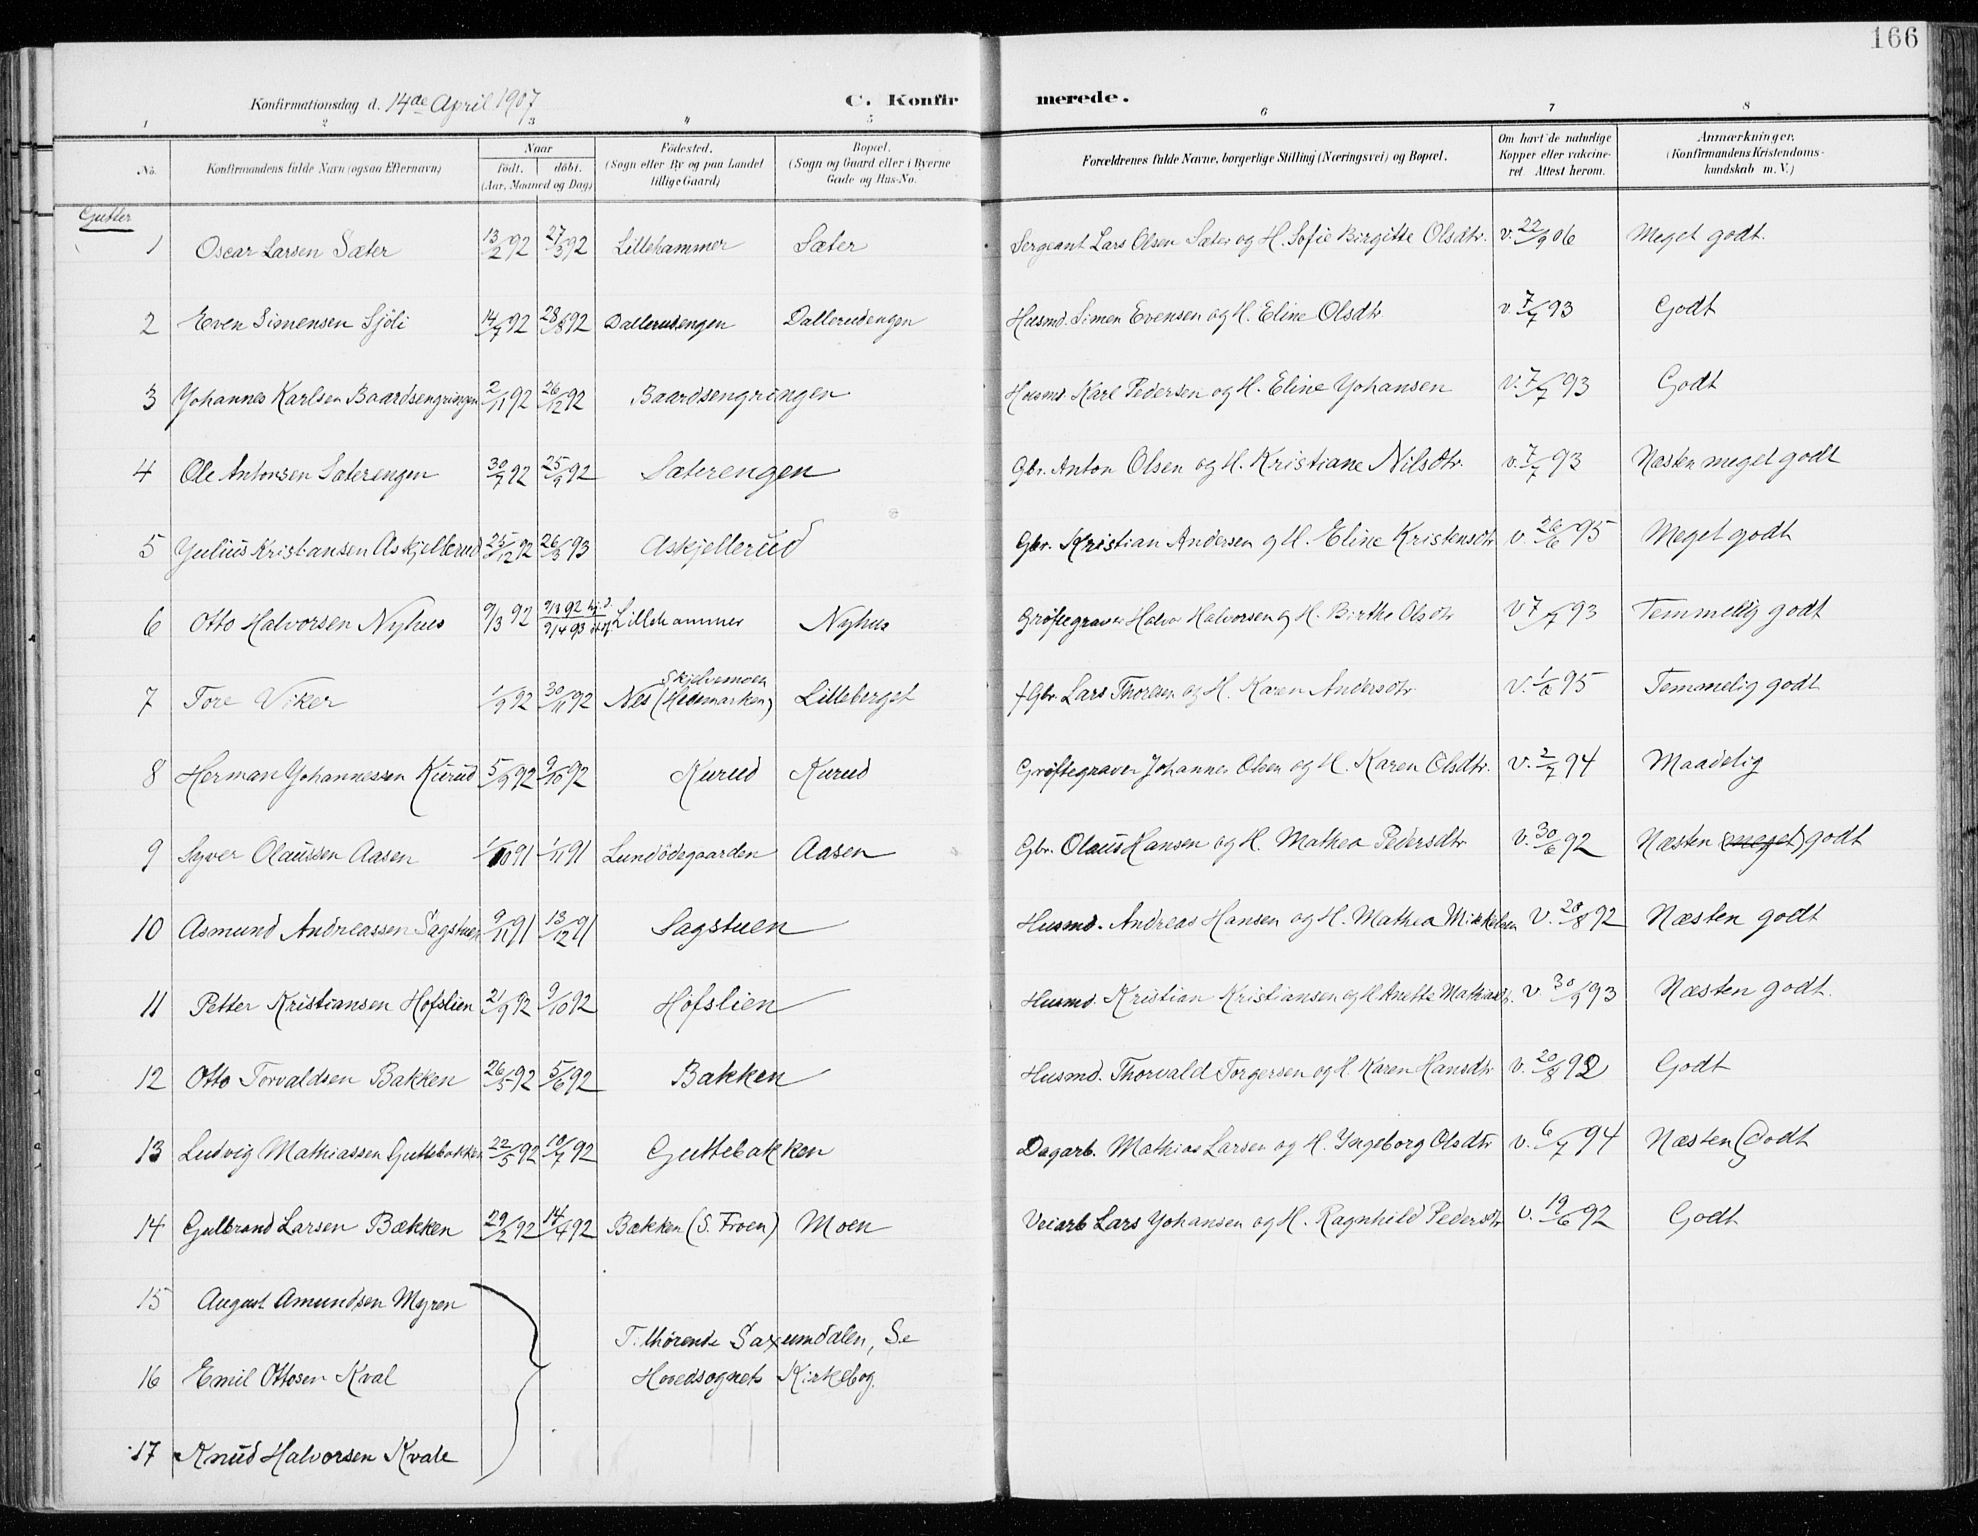 166
Konfirmationsdag d. 14de April 1907 C. Konfir merede.
1 2 3 4 5 6 7 8
No. Konfirmandens fulde Navn (ogsaa Efternavn) Naar födt. döbt. (Aar, Maaned og Dag) Födested. (Sogn eller By og paa Landet tillige Gaard) Bopæl. (Sogn og Gaard eller i Byerne Gade og Hus-No. Forældrenes fulde Navne, borgerlige Stilling (Næringsvei) og Bopæl. Om havt de naturlige Kopper eller vakcineret. Attest herom. Anmærkninger. (Konfirmandens Kristendomskundskab m. V.)
Gutter
1 Oscar Larsen Sæter 13/2 92 27/3 92 Lillehammer Sæter Sergeant Lars Olsen Sæter og H. Sofie Birgitte Olsdtr. v. 22/9 06 Meget godt.
2 Even Simensen Sjöli 14/7 92 28/8 92 Dallerudengen Dallerudengen Husmd. Simen Evensen og H. Eline Olsdtr v. 7/7 93 Godt
3 Yohannes Karlsen Baardsengringen 2/11 92 26/12 92 Baardsengringen Husmd. Karl Pedersen og H. Eline Yohansen v. 7/7 93 Godt
4 Ole Antonsen Sæterengen 30/7 92 25/9 92 Sæterengen Gbr. Anton Olsen og H. Kristiane Nilsdtr. v. 7/7 93 Næsten meget godt
5 Yulius Kristiansen Askjellerud 25/12 92 26/3 93 Askjellerud Gbr. Kristian Andersen og H. Eline Kristensdtr v. 26/6 95 Meget godt
6 Otto Halvorsen Nyhus 9/3 92 9/3 92 hj.d. 9/4 93 Lillehammer Nyhus Grøftegraver Halvor Halvorsen og H. Birthe Olsdtr v 7/7 93 Temmelig godt
7 Tore Viker 1/9 92 30/11 92 Nes (Hedemarken) Skjelvemoen Lilleberget † Gbr. Lars Thoresen og H. Karen Andersdtr v. 1/6 95 Temmelig godt
8 Herman Yohannessen Kurud 5/9 92 9/10 92 Kurud Kurud Grøftegraver Johannes Olsen og H. Karen Olsdtr. v. 2/7 94 Maadelig
9 Syver Olaussen Aasen 1/10 91 1/11 91 Lundödegaarden Aasen Gbr. Olaus Hansen og H. Mathea Pedersdtr v. 30/6 92 Næsten (meget) godt
10 Asmund Andreassen Sagstuen 9/11 91 13/12 91 Sagstuen Husmd. Andreas Hansen og H. Mathea Mikkelsen v. 28/8 92 Næsten godt
11 Petter Kristiansen Hofslien 21/9 92 9/10 92 Hofslien Husmd. Kristian Kristiansen og H. Anette Mathiasdtr. v. 30/9 93 Næsten godt.
12 Otto Torvaldsen Bakken 26/5 92 5/6 92 Bakken Husmd. Thorvald Torgersen og H. Karen Hansdtr v. 20/8 92 Godt
13 Ludvig Mathiassen Guttebakken 22/5 92 10/7 92 Guttebakken Dagarb. Mathias Larsen og H. Yngeborg Olsdtr v. 6/7 94 Næsten Godt
14 Gulbrand Larsen Bækken 29/2 92 14/4 92 Bækken (S. Froen) Moen Veiarb Lars Yohansen og H. Ragnhild Pedersdtr v. 19/6 92 Godt
15 August Amundsen Myren
T. hørende Saxumdalen, Se
16 Emil Ottosen Kval Hovedsognets Kirkebog.
17 Knud Halvorsen Kvale